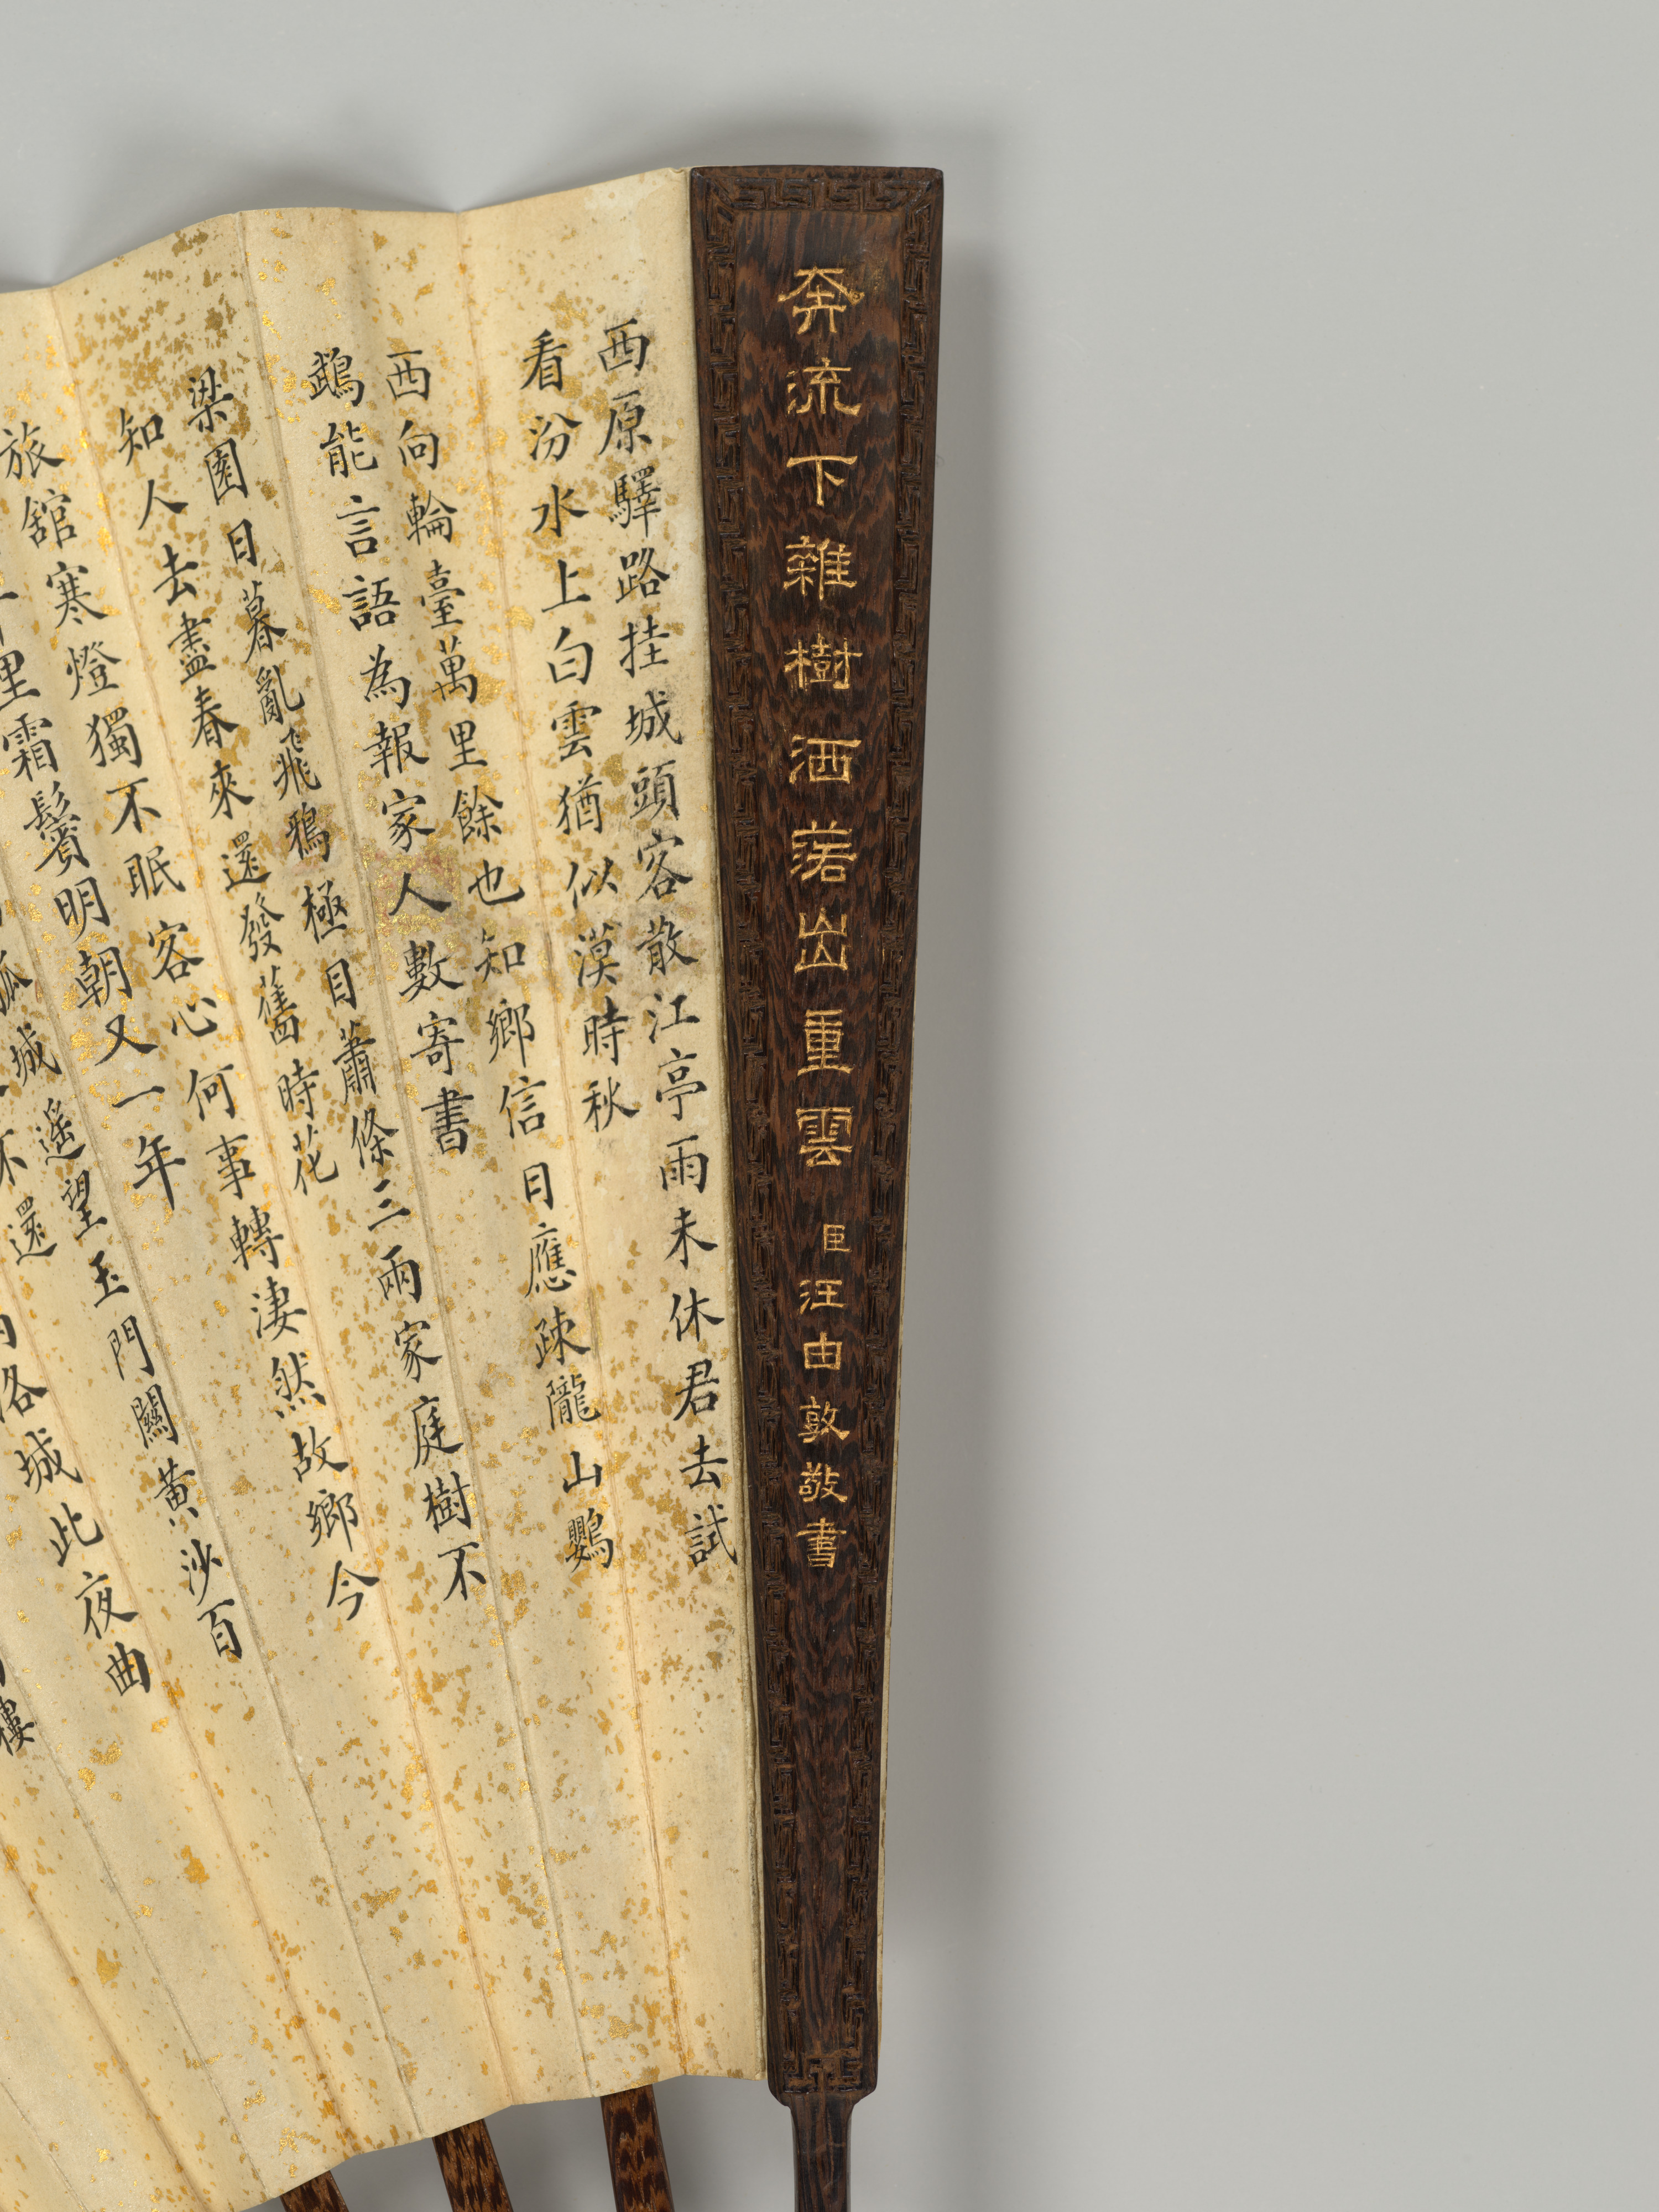 奔流下雜樹洒落出重雲
臣汪由敦敬書
西原驛路挂城頭客散江亭雨未休君去試
看汾水上白雲猶似漢時秋
西向輪臺萬里餘也知鄉信日應疎隴山鸚
鵡能言語為報家人數寄書
梁園日暮亂飛鴉極目蕭條三兩家庭樹不
知人去盡春來還發舊時花
旅舘寒燈獨不眠客心何事轉淒然故鄉今
里霜鬢明朝又一年
城遙望玉門關黃沙百
不還
洛城此夜曲
樓